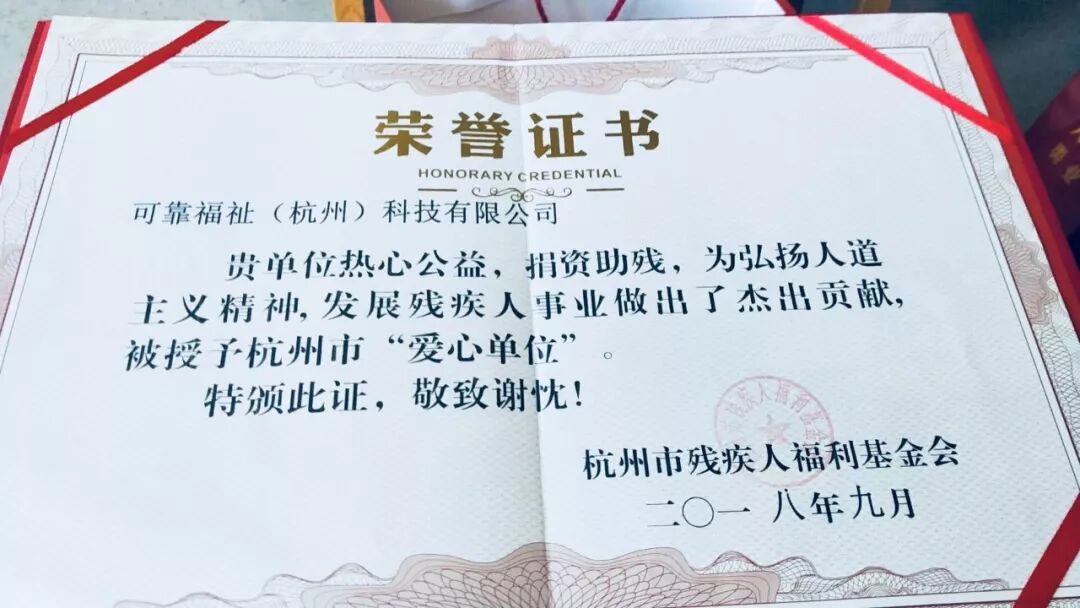 荣誉证书
HONORARY CREDENTIAL
可靠福祉（杭州）科技有限公司
贵单位热心公益，捐资助残，为弘扬人道
主义精神，发展残疾人事业做出了杰出贡献，
被授予杭州市“爱心单位”。
特颁此证，敬致谢忱！
残疾人福利基金
杭州市残疾人福利基金会
二〇一八年九月